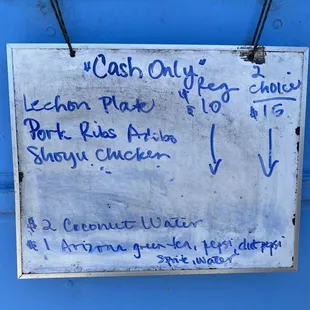 "Cash Only"
Reg 2 choice
Lechon Plate $10 $15
Pork Ribs Adibo
Shoyu Chicken
$2 Coconut Water
$1 Arizona green tea, pepsi, diet pepsi
Sprite, Water